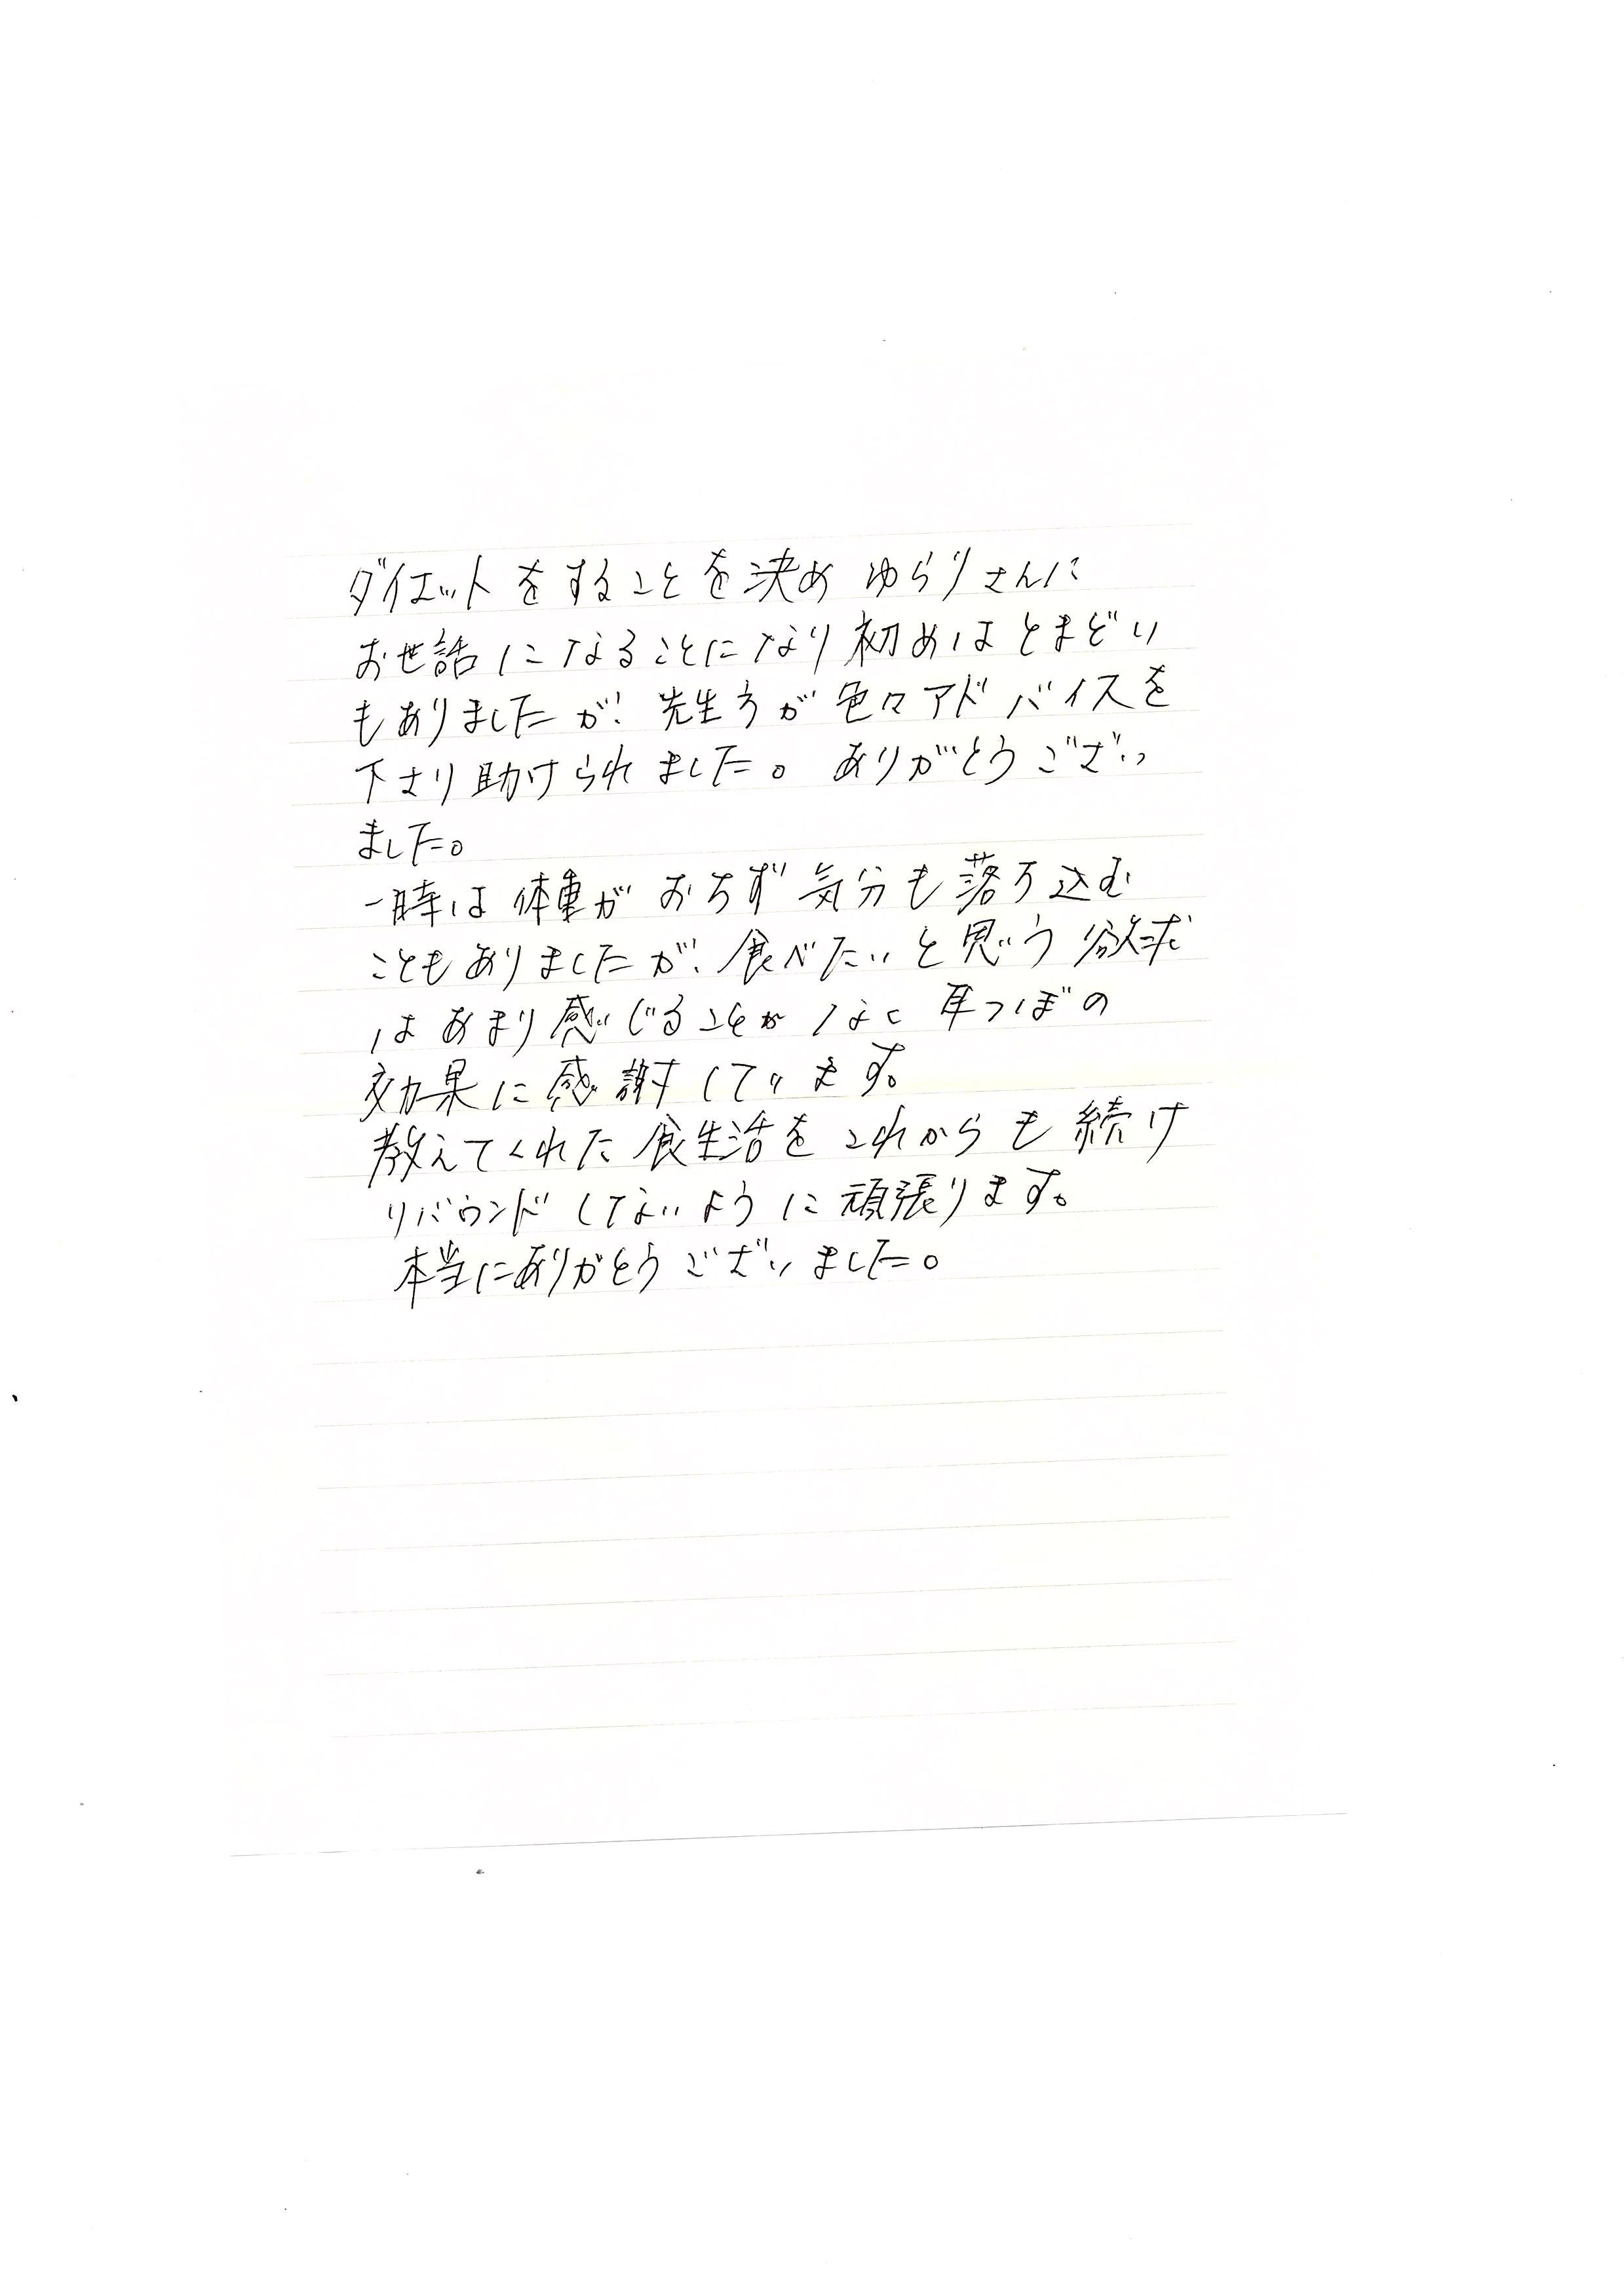 ダイエットをすることを決め ゆらりさんに
お世話になることになり初めはとまどい
もありましたが、先生方が色々アドバイスを
下さり助けられました。ありがとうござい
ました。
一時は体重がおちず気分も落ち込む
こともありましたが、食べたいと思う欲求
はあまり感じることがなく耳つぼの
効果に感謝しています。
教えてくれた食生活をこれからも続け
リバウンドしてないように頑張ります。
本当にありがとうございました。